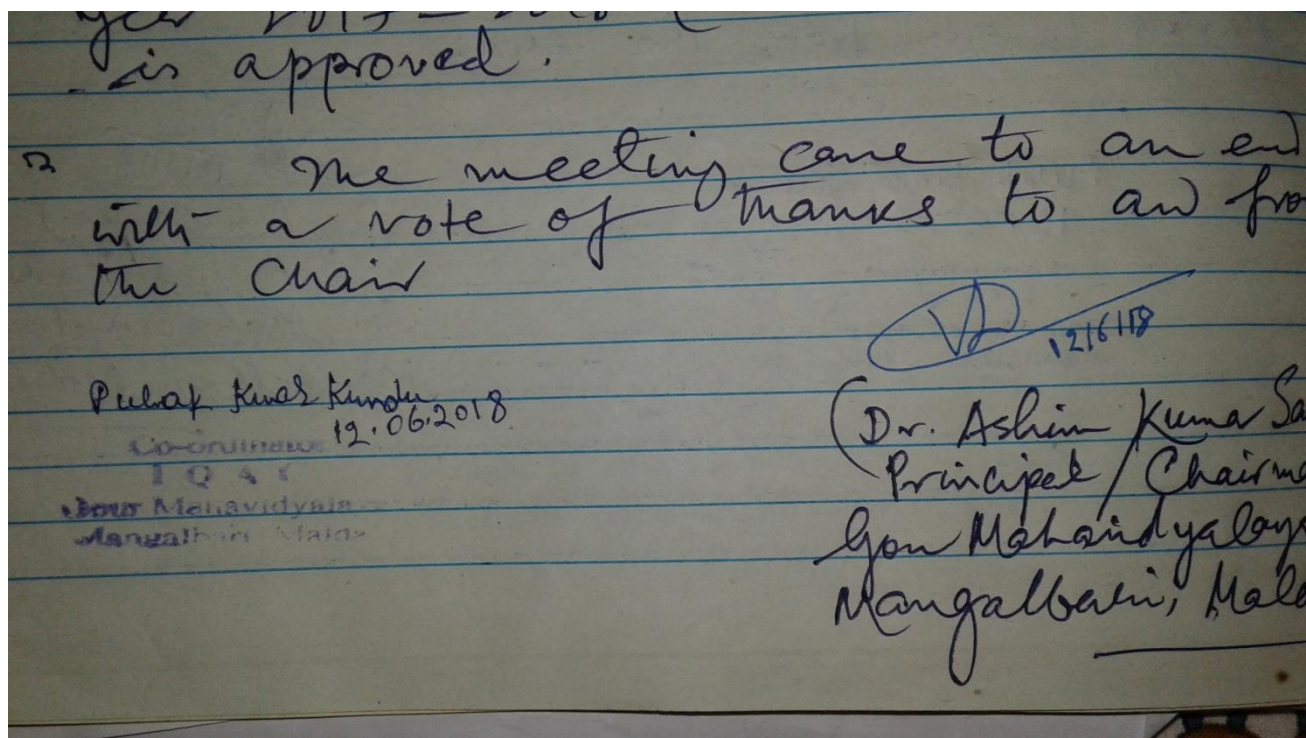 is approved.
The meeting came to an end
with a vote of thanks to all fro
the Chair
12/6/18
Pulak Kumar Kundu
12.06.2018
Co-ordinator
I Q A C
Gour Mahavidyala
Mangalbari Malda
(Dr. Ashim Kumar Sa
Principal / Chairma
Gour Mahavidyalaya
Mangalbari, Mald